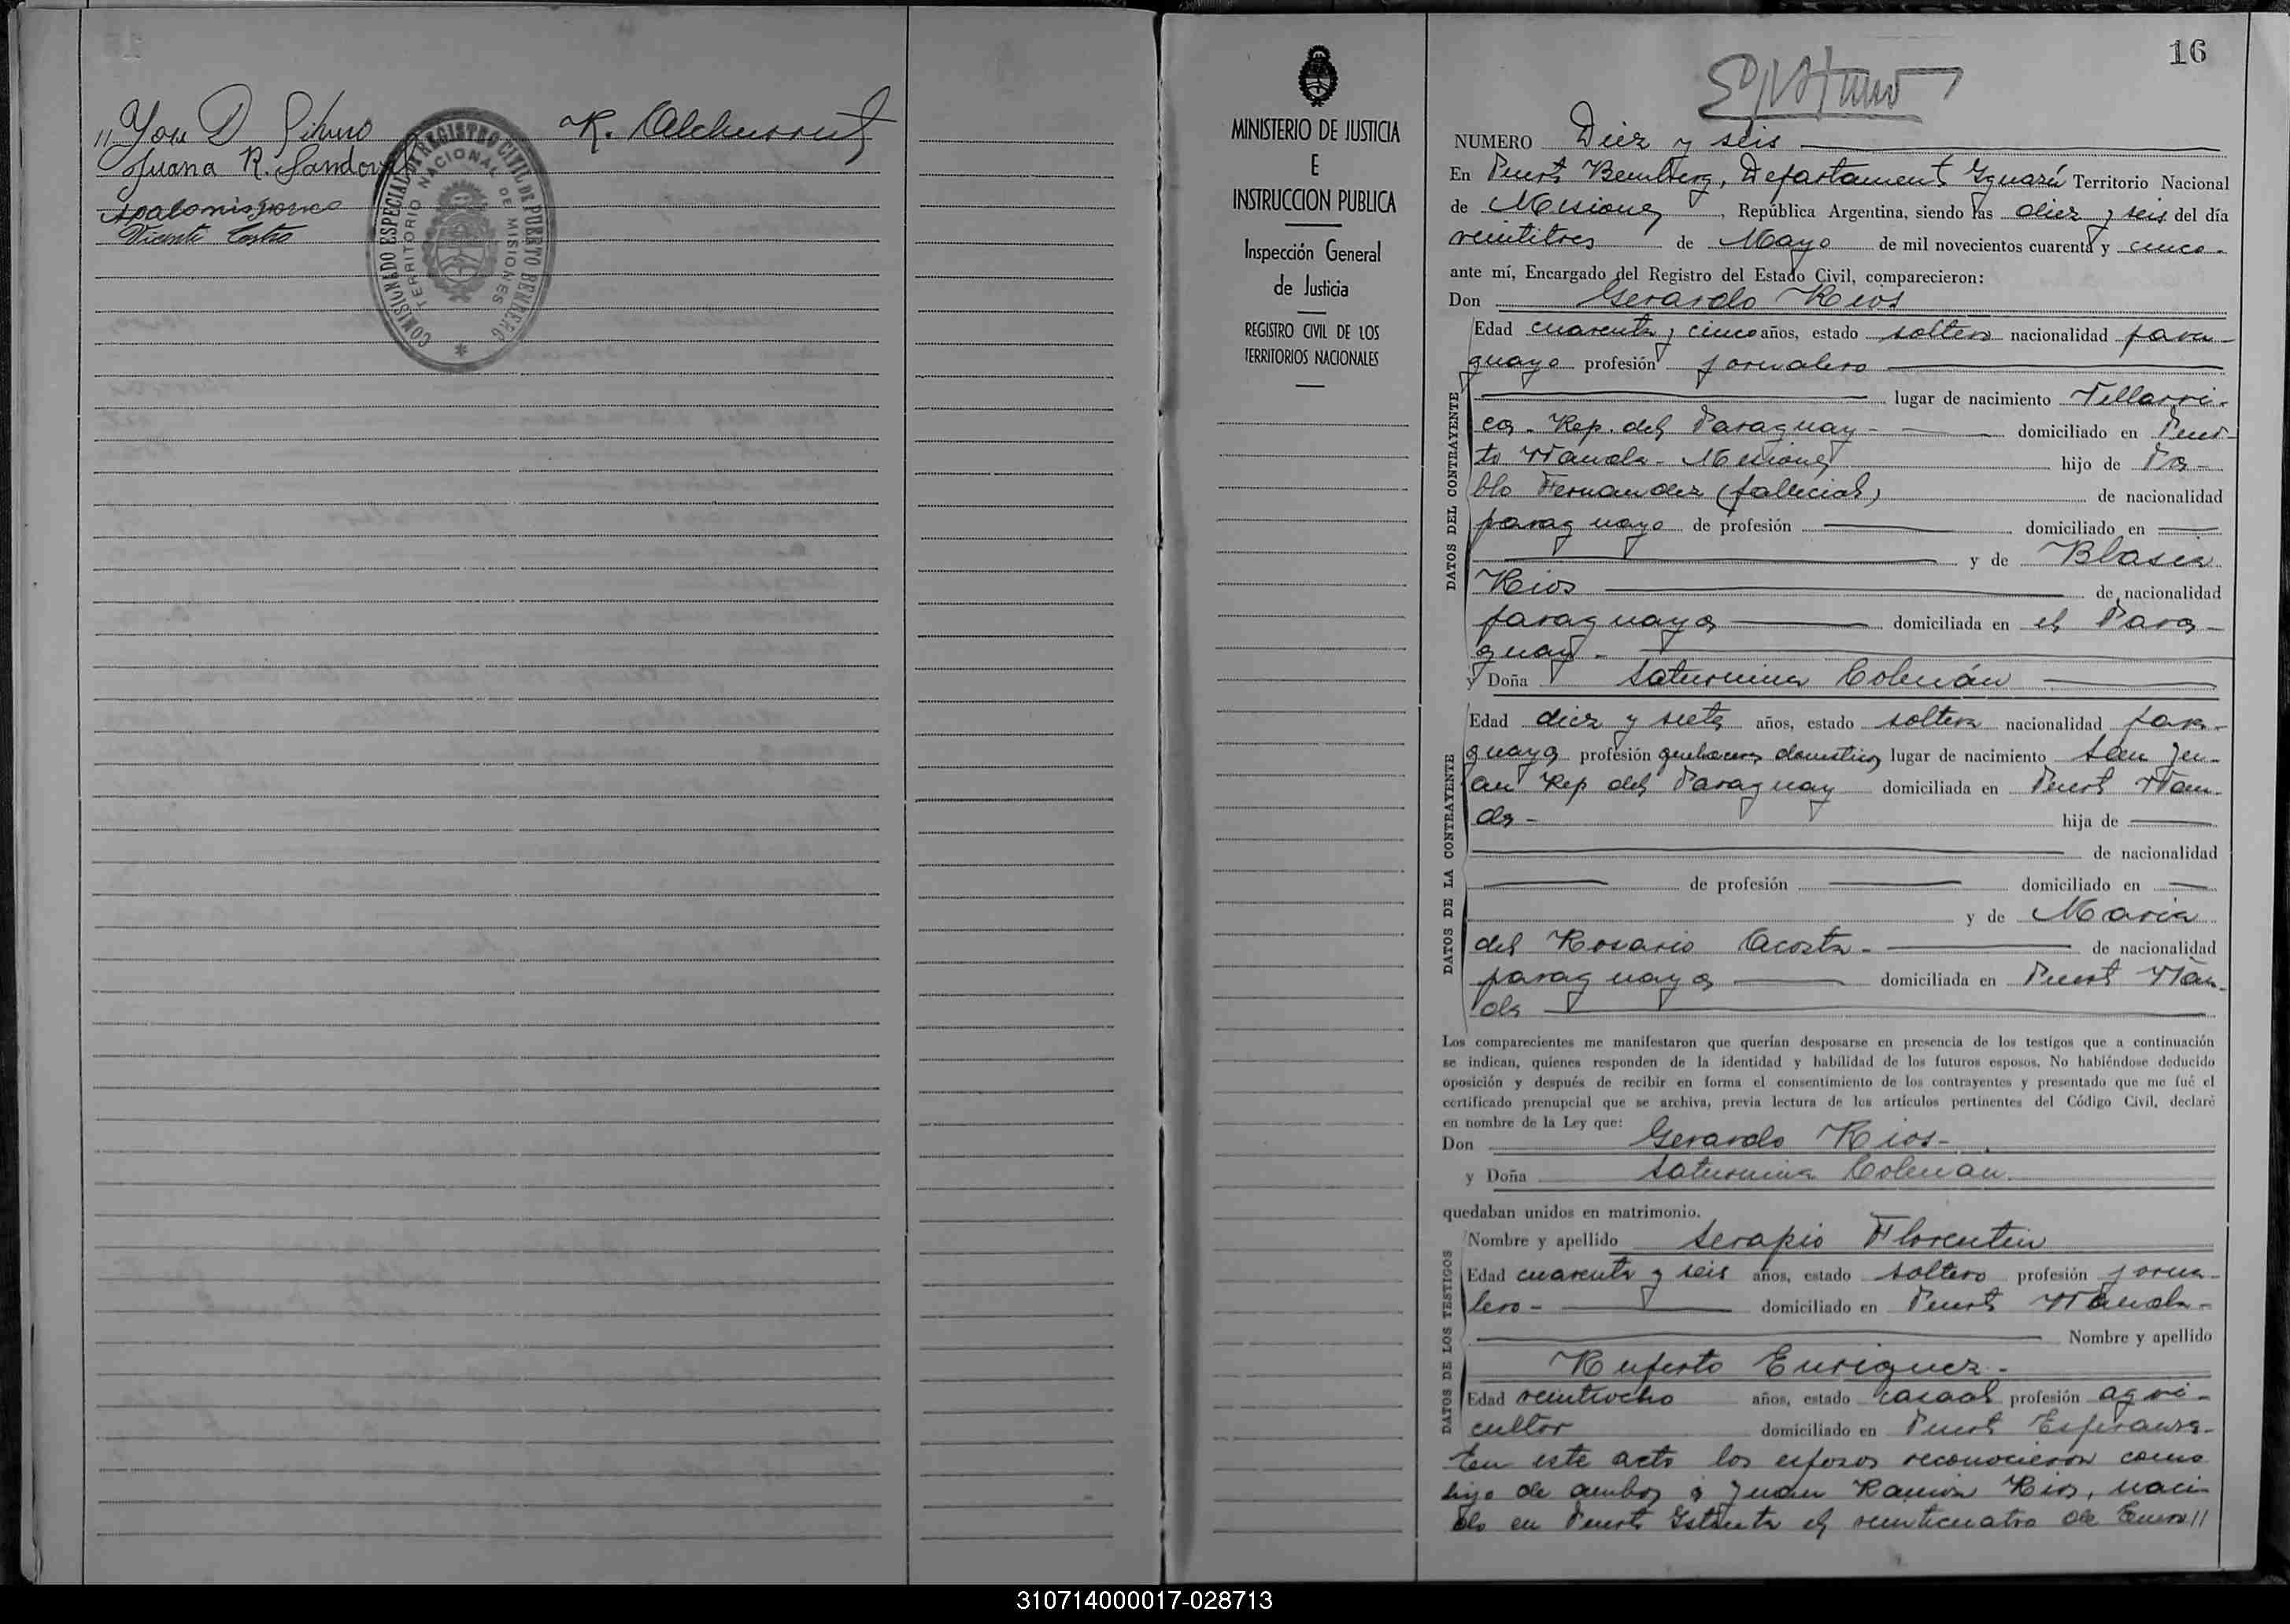 " Jose D.
Juana R. Sandoval
Vicente Castro
COMISIONADO ESPECIAL DE REGISTRO CIVIL DE PUERTO BEMBERG
TERRITORIO NACIONAL DE MISIONES
MINISTERIO DE JUSTICIA
E
INSTRUCCION PUBLICA
Inspección General
de Justicia
REGISTRO CIVIL DE LOS
TERRITORIOS NACIONALES
16
NUMERO Diez y seis
En Puerto Bemberg, Departamento Iguazú Territorio Nacional
de Misiones, República Argentina, siendo las diez y seis del día
veintitres de Mayo de mil novecientos cuarenta y cinco.
ante mí, Encargado del Registro del Estado Civil, comparecieron:
Don Gerardo Rios
DATOS DEL CONTRAYENTE
Edad cuarenta y cinco años, estado soltero nacionalidad para-
guayo profesión jornalero
lugar de nacimiento Villarri-
ca - Rep. del Paraguay - domiciliado en Puer-
to Wanda - Misiones hijo de Pa-
blo Fernandez (fallecido) de nacionalidad
paraguayo de profesión domiciliado en
y de Blasia
Rios de nacionalidad
paraguaya domiciliada en el Para-
guay -
y Doña Saturnina Colmán
DATOS DE LA CONTRAYENTE
Edad diez y siete años, estado soltera nacionalidad para-
guaya profesión quehaceres domesticos lugar de nacimiento San Ju-
an Rep del Paraguay domiciliada en Puerto Wan-
da - hija de
de nacionalidad
de profesión domiciliado en
y de Maria
del Rosario Acosta - de nacionalidad
paraguaya domiciliada en Puerto Wan-
da
Los comparecientes me manifestaron que querían desposarse en presencia de los testigos que a continuación
se indican, quienes responden de la identidad y habilidad de los futuros esposos. No habiéndose deducido
oposición y después de recibir en forma el consentimiento de los contrayentes y presentado que me fué el
certificado prenupcial que se archiva, previa lectura de los artículos pertinentes del Código Civil, declaré
en nombre de la Ley que:
Don Gerardo Rios -
y Doña Saturnina Colman
quedaban unidos en matrimonio.
DATOS DE LOS TESTIGOS
Nombre y apellido Serapio Florentin
Edad cuarenta y seis años, estado soltero profesión jorna-
lero - domiciliado en Puerto Wanda -
Nombre y apellido
Ruperto Enriquez -
Edad veintiocho años, estado casado profesión agri-
cultor domiciliado en Puerto Esperanza -
En este acto los esposos reconocieron como
hijo de ambos a Juan Ramon Rios, naci-
do en Puerto Istueta el veinticuatro de Enero //
310714000017-028713